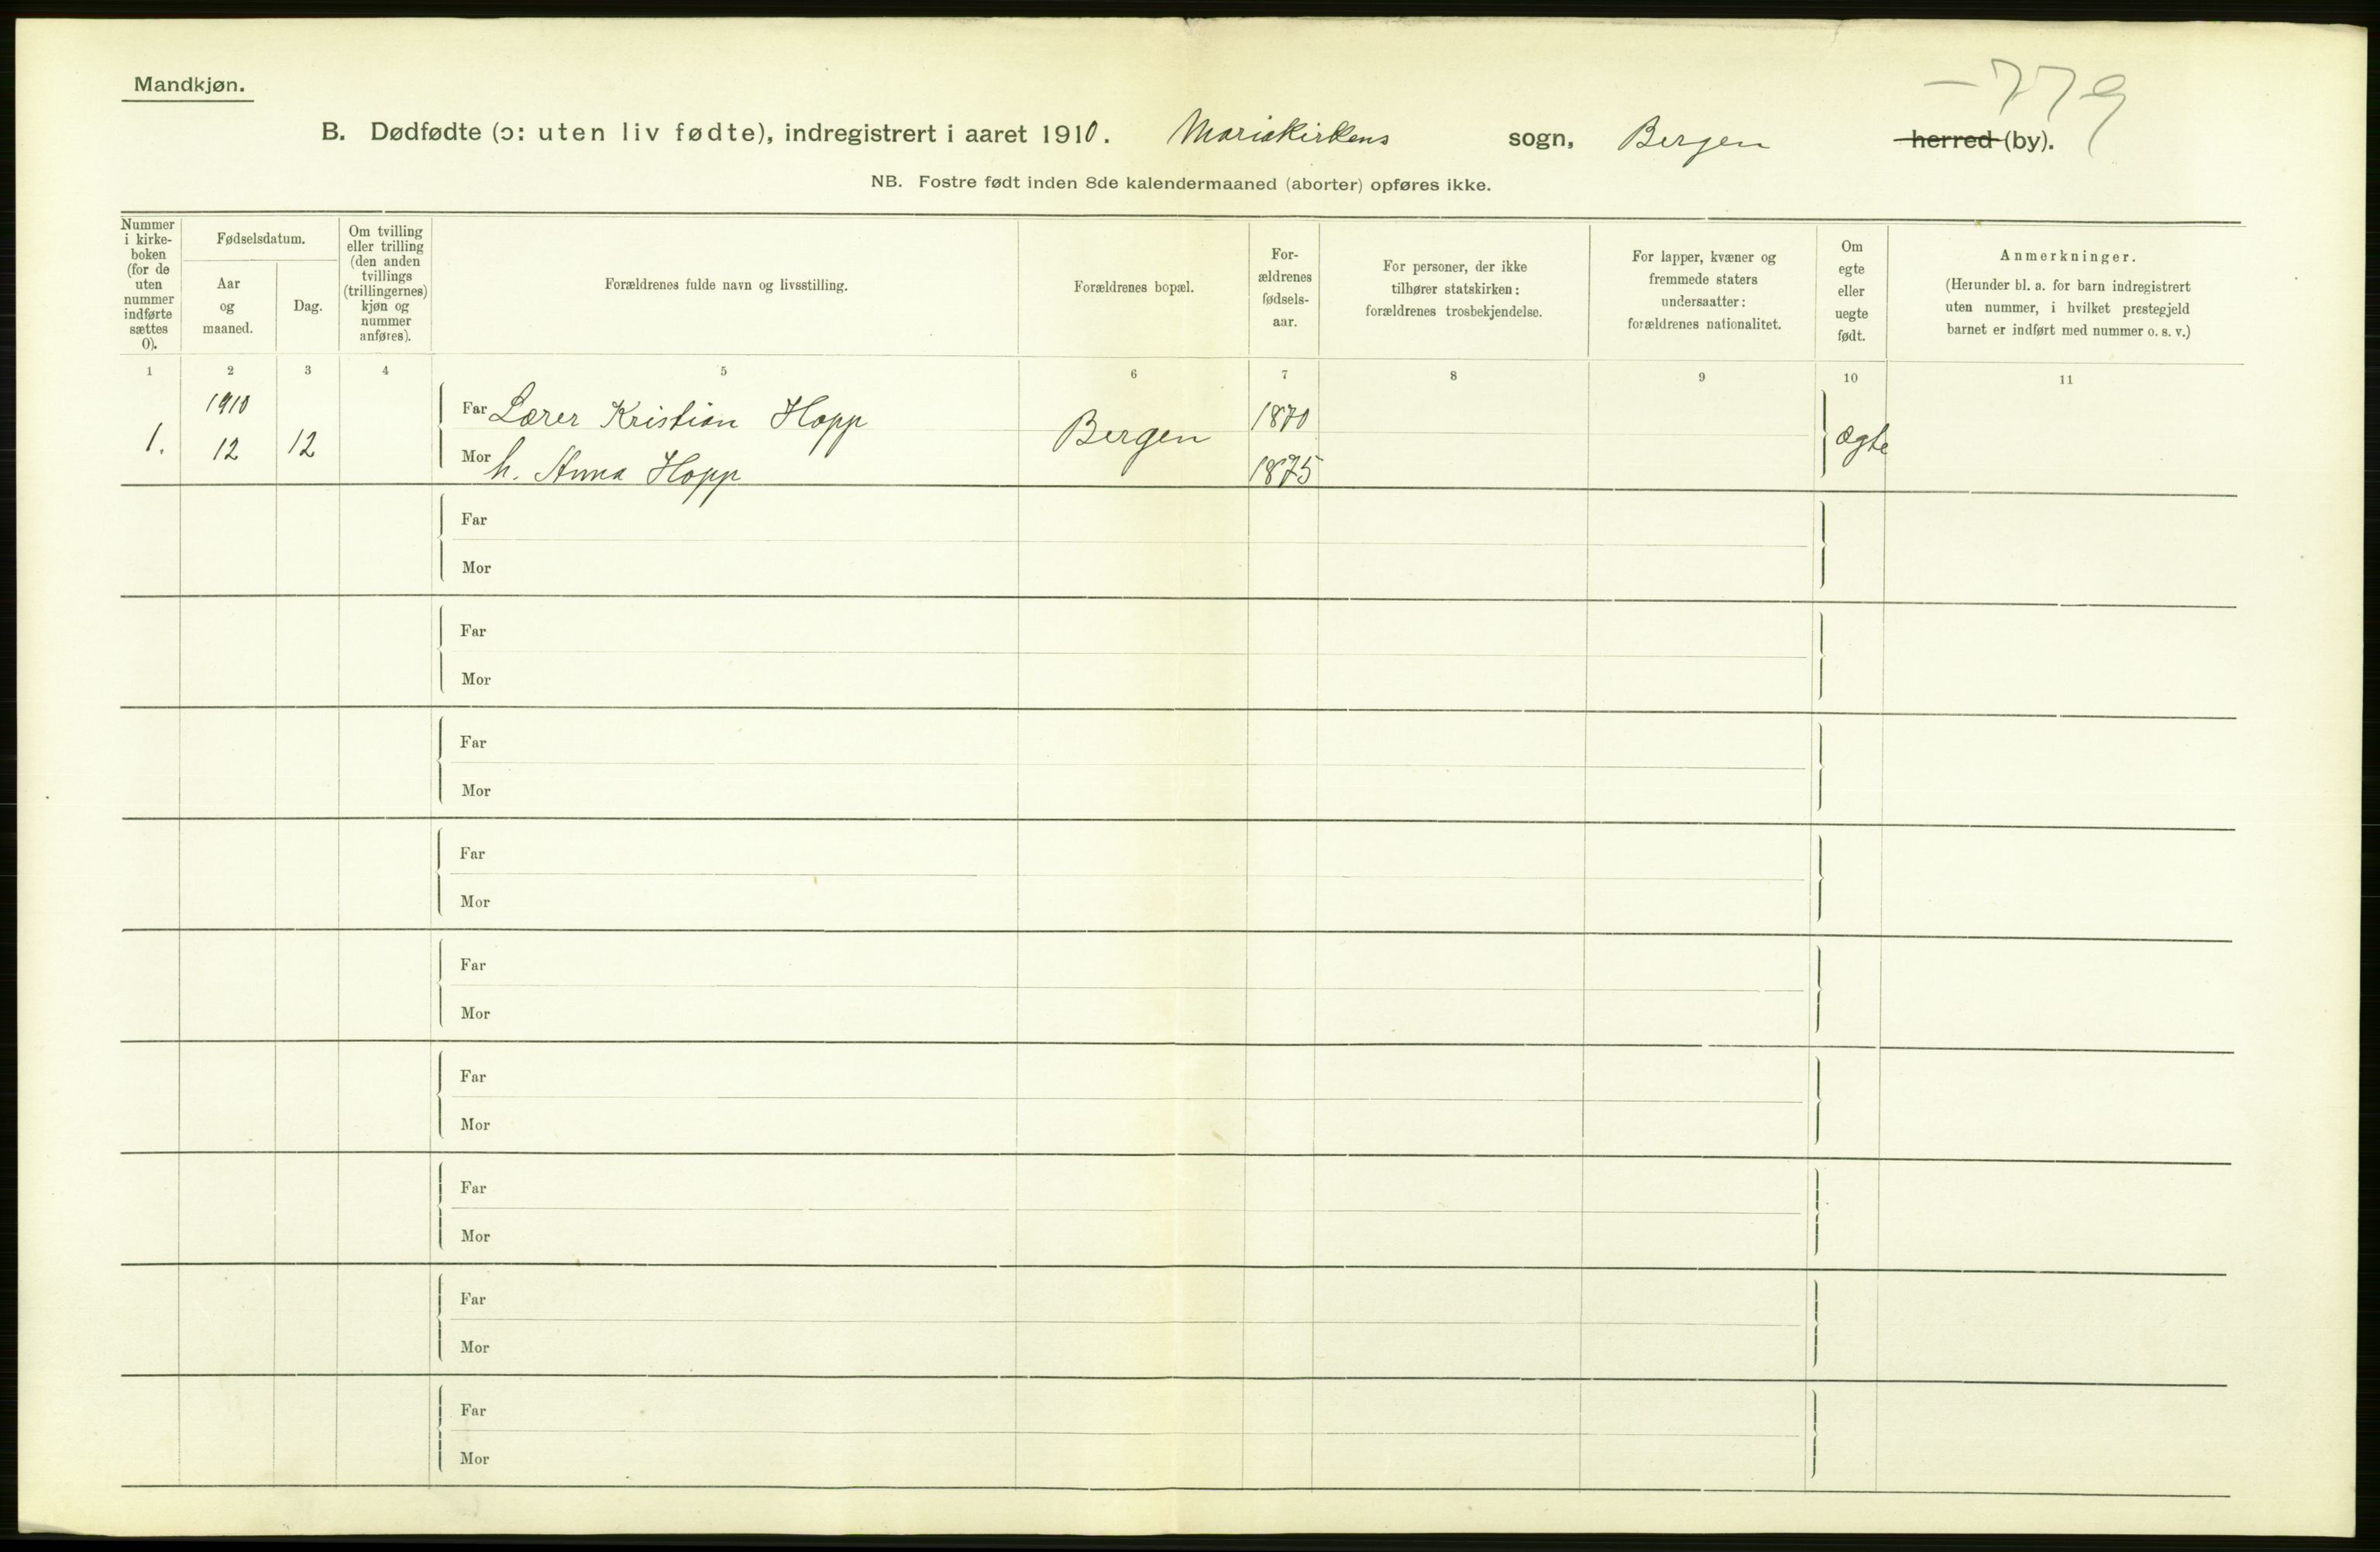 Mandkjøn.
-779
B. Dødfødte (ɔ: uten liv fødte), indregistrert i aaret 1910. Mariakirkens sogn, Bergen herred (by).
NB. Fostre født inden 8de kalendermaaned (aborter) opføres ikke.
Nummer
i kirke-
boken
(for de
uten
nummer
indførte
sættes
0).
Fødselsdatum.
Aar
og
maaned.
Dag.
Om tvilling
eller trilling
(den anden
tvillings
(trillingernes)
kjøn og
nummer
anføres).
Forældrenes fulde navn og livsstilling.
Forældrenes bopæl.
For-
ældrenes
fødsels-
aar.
For personer, der ikke
tilhører statskirken:
forældrenes trosbekjendelse.
For lapper, kvæner og
fremmede staters
undersaatter:
forældrenes nationalitet.
Om
egte
eller
uegte
født.
Anmerkninger.
(Herunder bl. a. for barn indregistrert
uten nummer, i hvilket prestegjeld
barnet er indført med nummer o. s. v.)
1 2 3 4 5 6 7 8 9 10 11
1910
1. 12 12
Far Lærer Kristian Hopp
Mor h. Anna Hopp
Bergen
1870
1875
ægte
Far
Mor
Far
Mor
Far
Mor
Far
Mor
Far
Mor
Far
Mor
Far
Mor
Far
Mor
Far
Mor